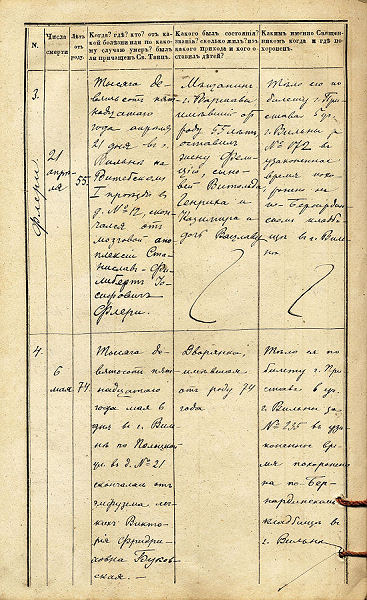 N.
Числа смерти
Лѣта отъ роду.
Когда? гдѣ? кто? отъ ка-
кой болѣзни или по како-
му случаю умеръ? былъ
ли причащенъ Св. Таинъ.
Какого былъ состоянія
званія? сколько жилъ? изъ
какого прихода и кого о-
ставилъ дѣтей?
Какимъ именно Священ-
никомъ когда и гдѣ по-
хороненъ.
3.
Флери.
21
апрѣ-
ля
55.
Тысяча де-
вятьсотъ пят-
надцатаго
года апрѣля
21 дня въ г.
Вильнѣ на
Витебскомъ
I проѣздѣ въ
д. № 12, скон-
чался отъ
мозговой апо-
плексіи Ста-
ниславъ-Фи-
либертъ Іо-
сифовичъ
Флери.
Мѣщанинъ
г. Варшавы
имѣвшій отъ
роду 55 лѣтъ,
оставилъ
жену Фели-
цію, сыно-
вей Витольда
Генриха и
Казимира и
дочь Вацлаву
Тѣло его по
билету г. При-
става 5 уч.
г. Вильны за
№ 172 въ
узаконенное
время похо-
ронено на
по-Бернардин-
скомъ кладби-
щѣ въ г. Виль-
нѣ
4.
6
мая
74.
Тысяча де-
вятьсотъ пят-
надцатаго
года мая 6
дня въ г. Виль-
нѣ по Полоцкой
ул. въ д. № 21
скончалась отъ
эмфузма лег-
кихъ Викто-
рія Фридри-
ховна Буков-
ская. —
Дворянка,
имѣвшая
отъ роду 74
года.
Тѣло ея по
билету г. При-
става 6 уч.
г. Вильны за
№ 235 въ уза-
коненное вре-
мя похоронено
на по-Бер-
нардинскомъ
кладбищѣ въ
г. Вильнѣ